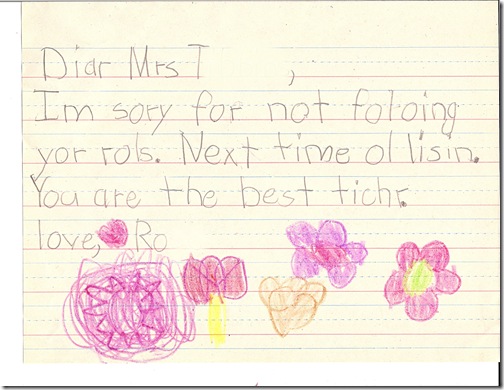 Diar Mrs T ,
Im sory for not foloing
yor rols. Next time ol lisin.
You are the best tichr.
love, Ro